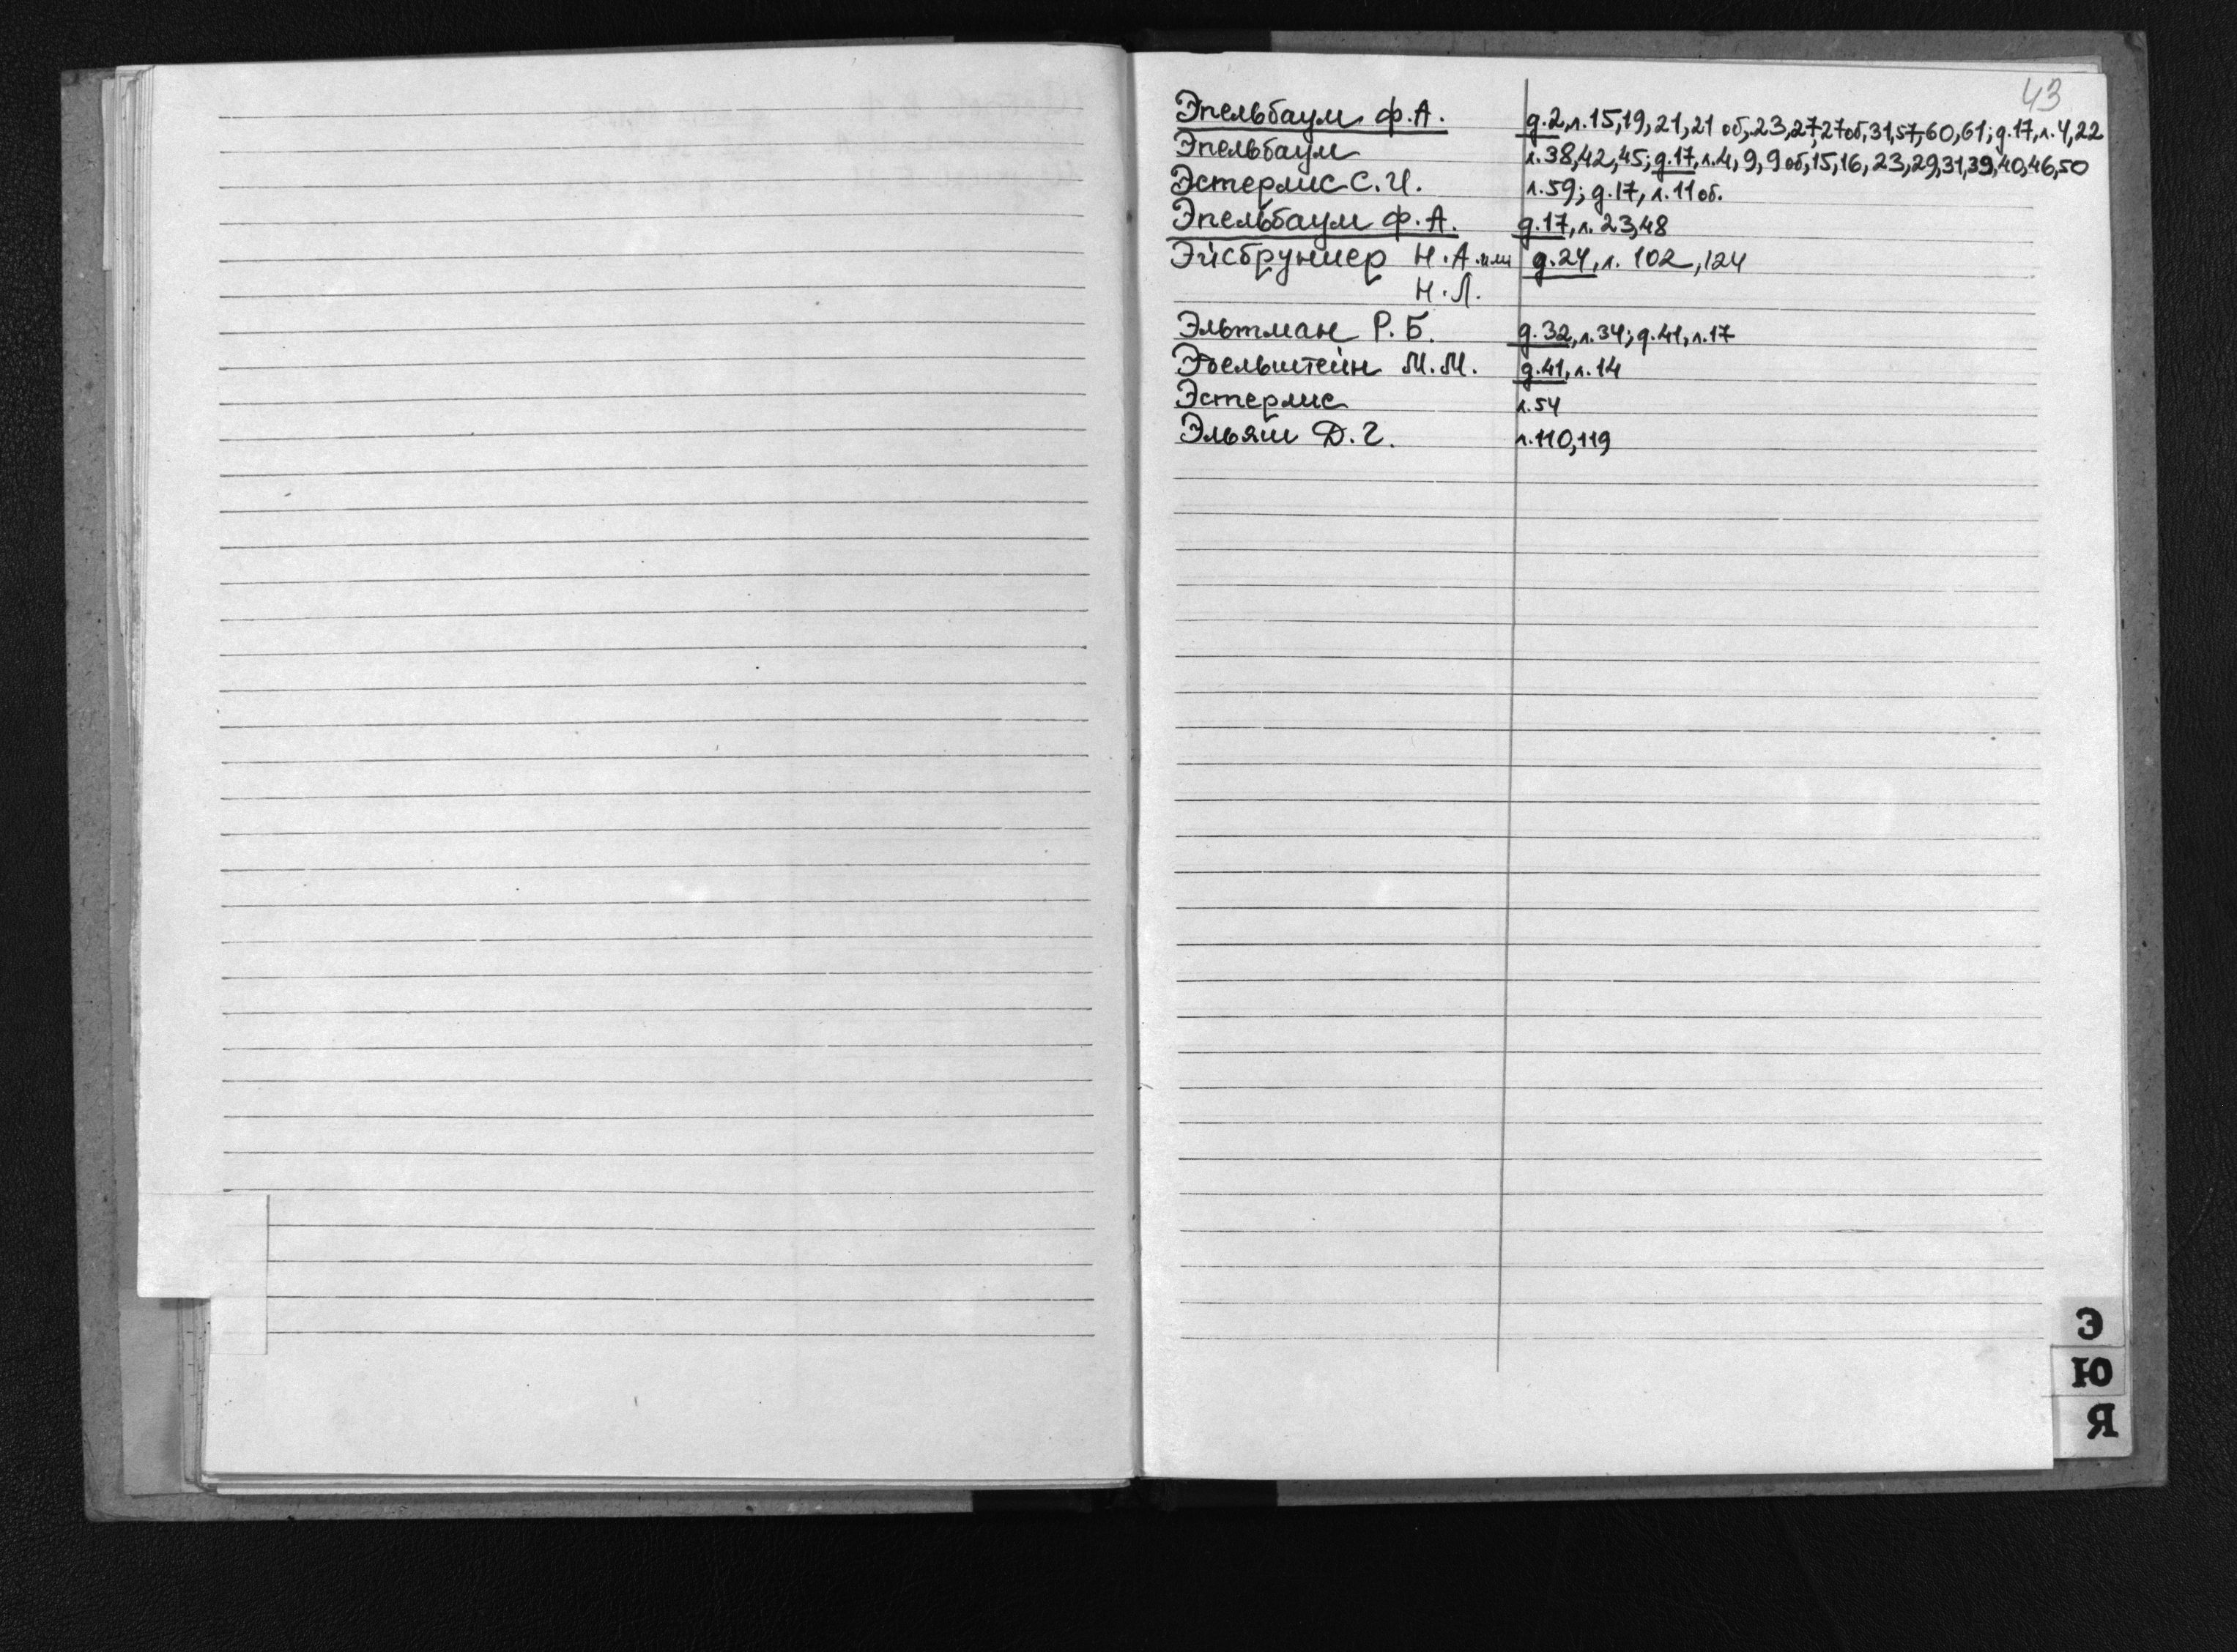 43
Эпельбаум Ф.А. д.2, л.15,19,21,21 об,23,27,27об,31,57,60,61; д.17, л.4,22
Эпельбаум л.38,42,45; д.17, л.4,9,9об,15,16,23,29,31,39,40,46,50
Эстерлис С.И. л.59; д.17, л.11 об.
Эпельбаум Ф.А. д.17, л.23,48
Эйсбруннер Н.А. или д.24, л. 102,124
Н.Л.
Эльтман Р.Б. д.32, л.34; д.41, л.17
Эдельштейн М.М. д.41, л.14
Эстерлис л.54
Эльяш Д.Г. л.110,119
Э
Ю
Я